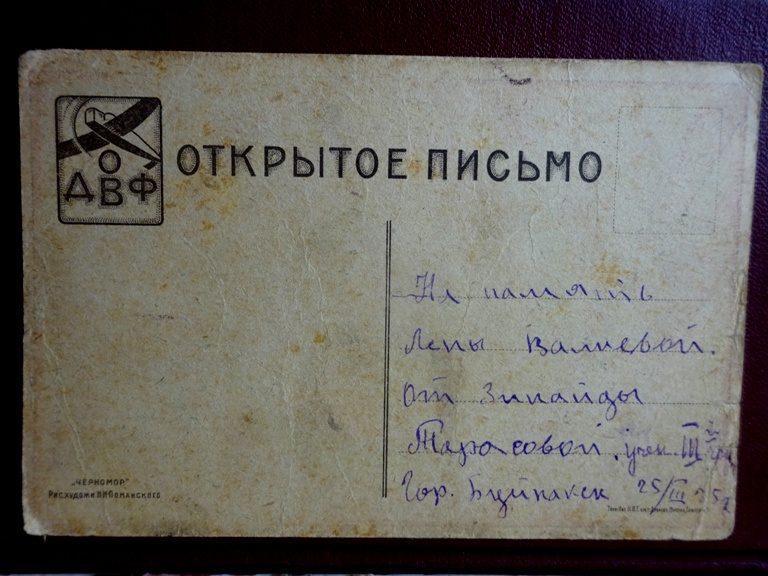 ОДВФ
ОТКРЫТОЕ ПИСЬМО
На память
Лены Валиевой.
От Зинаиды
Тарасовой. учен. III
Гор. Буйнакск 25/III
„ЧЕРНОМОР“
РИС. ХУДОЖ.